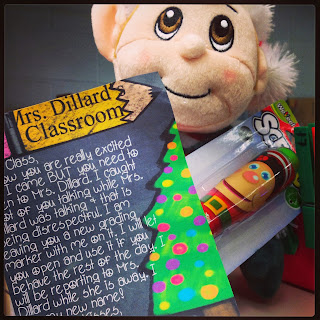 Mrs. Dillard
Classroom
Class,
ow you are really excited
I came BUT you need to
n to Mrs. Dillard. I caught
ost of you talking while Mrs.
Dillard was talking & that is
being disrespectful. I am
leaving you a new grading
marker with me on it. I will let
you open and use it if you
behave the rest of the day. I
will be reporting to Mrs.
Dillard while she is away. I
my new name!